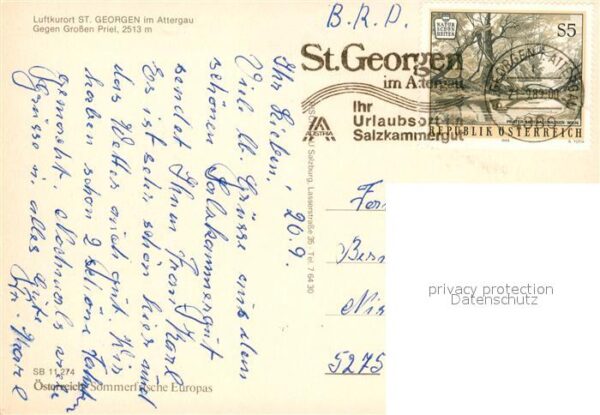 Luftkurort ST. GEORGEN im Attergau
Gegen Großen Priel, 2513 m
B.R.D.
St.Georgen
im Attergau
Ihr
Urlaubsort im
Salzkammergut
AUSTRIA
NATUR
SCHÖN
HEITEN
S5
REPUBLIK ÖSTERREICH
Ihr Lieben! 20.9.
Viele lb. Grüsse aus dem
schönen Salzkammergut
sendet Ihnen
Es ist sehr schön hier und
das Wetter auch gut. Wir
haben schon 2 schöne
gemacht Nochmals viele
Grüsse u. alles Gute
Salzburg, Lasserstraße 35 Tel. 7 64 30
5275
privacy protection
Datenschutz
SB 11 274
Österreich Sommerfrische Europas